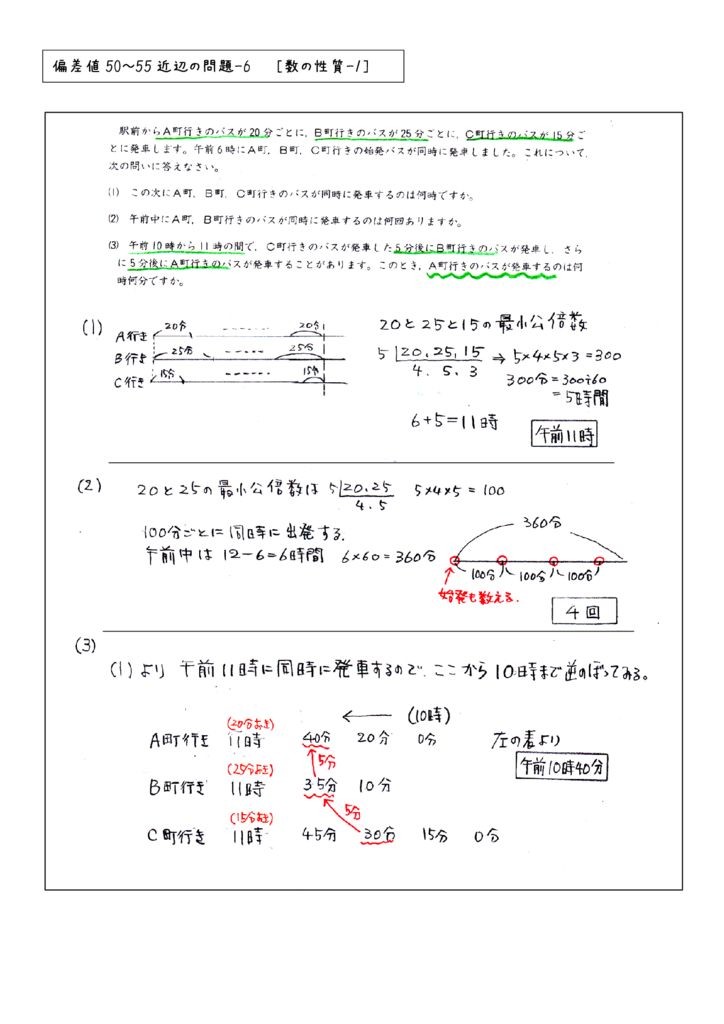 偏差値50〜55近辺の問題-6 [数の性質-1]
駅前からA町行きのバスが20分ごとに，B町行きのバスが25分ごとに，C町行きのバスが15分ご
とに発車します。午前6時にA町，B町，C町行きの始発バスが同時に発車しました。これについて，
次の問いに答えなさい。
(1) この次にA町，B町，C町行きのバスが同時に発車するのは何時ですか。
(2) 午前中にA町，B町行きのバスが同時に発車するのは何回ありますか。
(3) 午前10時から11時の間で，C町行きのバスが発車した5分後にB町行きのバスが発車し，さら
に5分後にA町行きのバスが発車することがあります。このとき，A町行きのバスが発車するのは何
時何分ですか。
(1)
A行き 20分 ----- 20分
B行き 25分 ----- 25分
C行き 15分 ----- 15分
20と25と15の最小公倍数
5 20.25.15 → 5×4×5×3=300
4. 5. 3
300分=300÷60
=5時間
6+5=11時
午前11時
(2)
20と25の最小公倍数は 5 20.25 5×4×5=100
4.5
100分ごとに同時に出発する.
午前中は 12-6=6時間 6×60=360分
360分
100分 100分 100分
始発も数える.
4回
(3)
(1)より 午前11時に同時に発車するので、ここから10時まで逆のぼってみる。
← (10時)
(20分おき)
A町行き 11時 40分 20分 0分
5分
(25分おき)
B町行き 11時 35分 10分
5分
(15分おき)
C町行き 11時 45分 30分 15分 0分
左の表より
午前10時40分